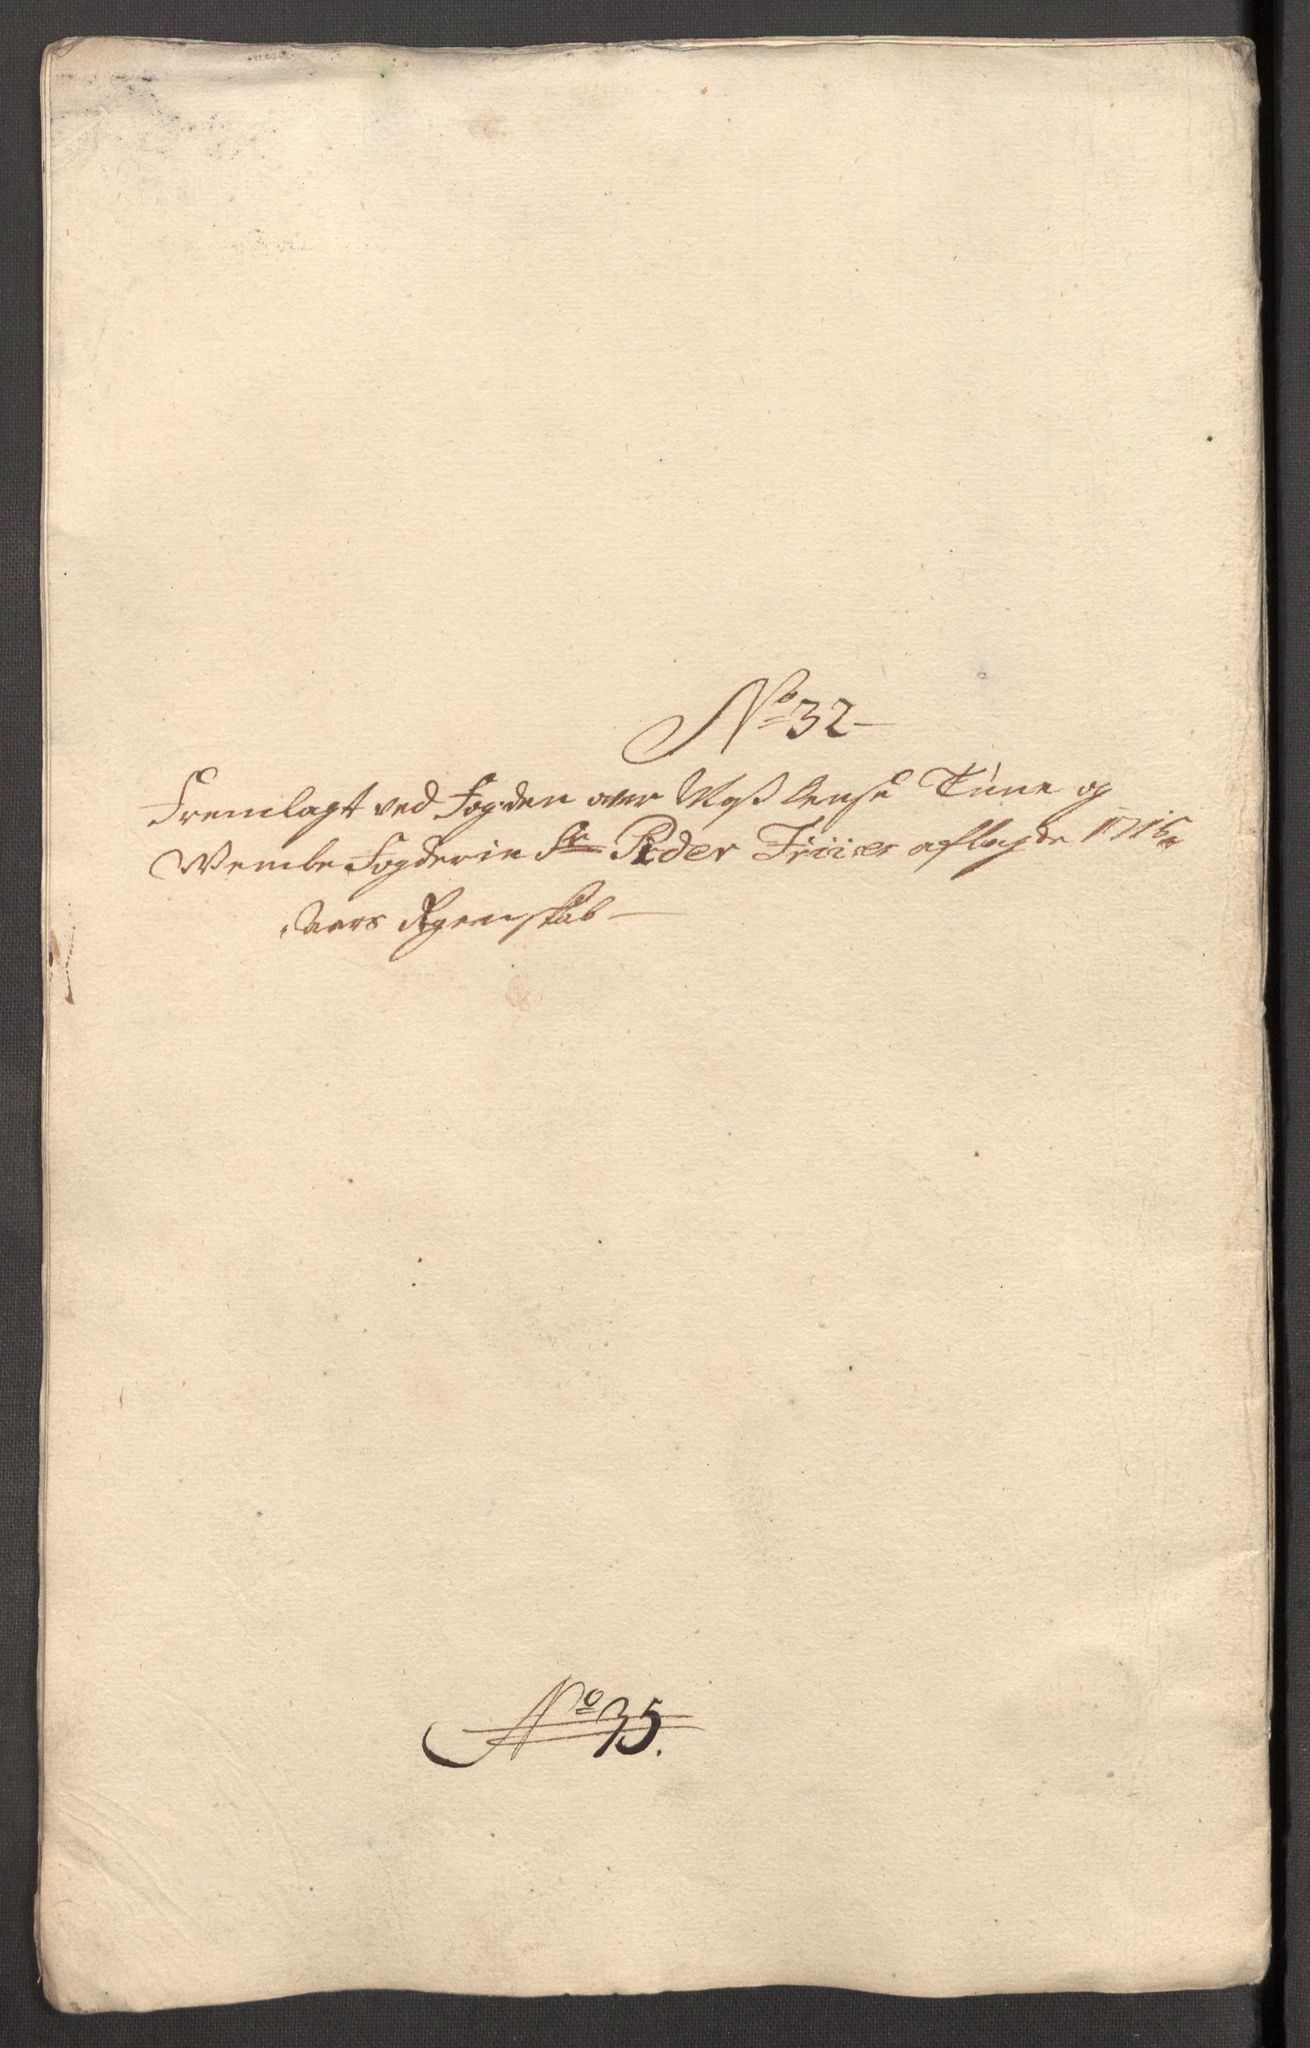 No 32
Fremlagt ved Fogden over Moss Lensz Tune og
Wembe Fogderie Sr Peder Friiser aflagde 1715
Aars Regenskab
No 35.